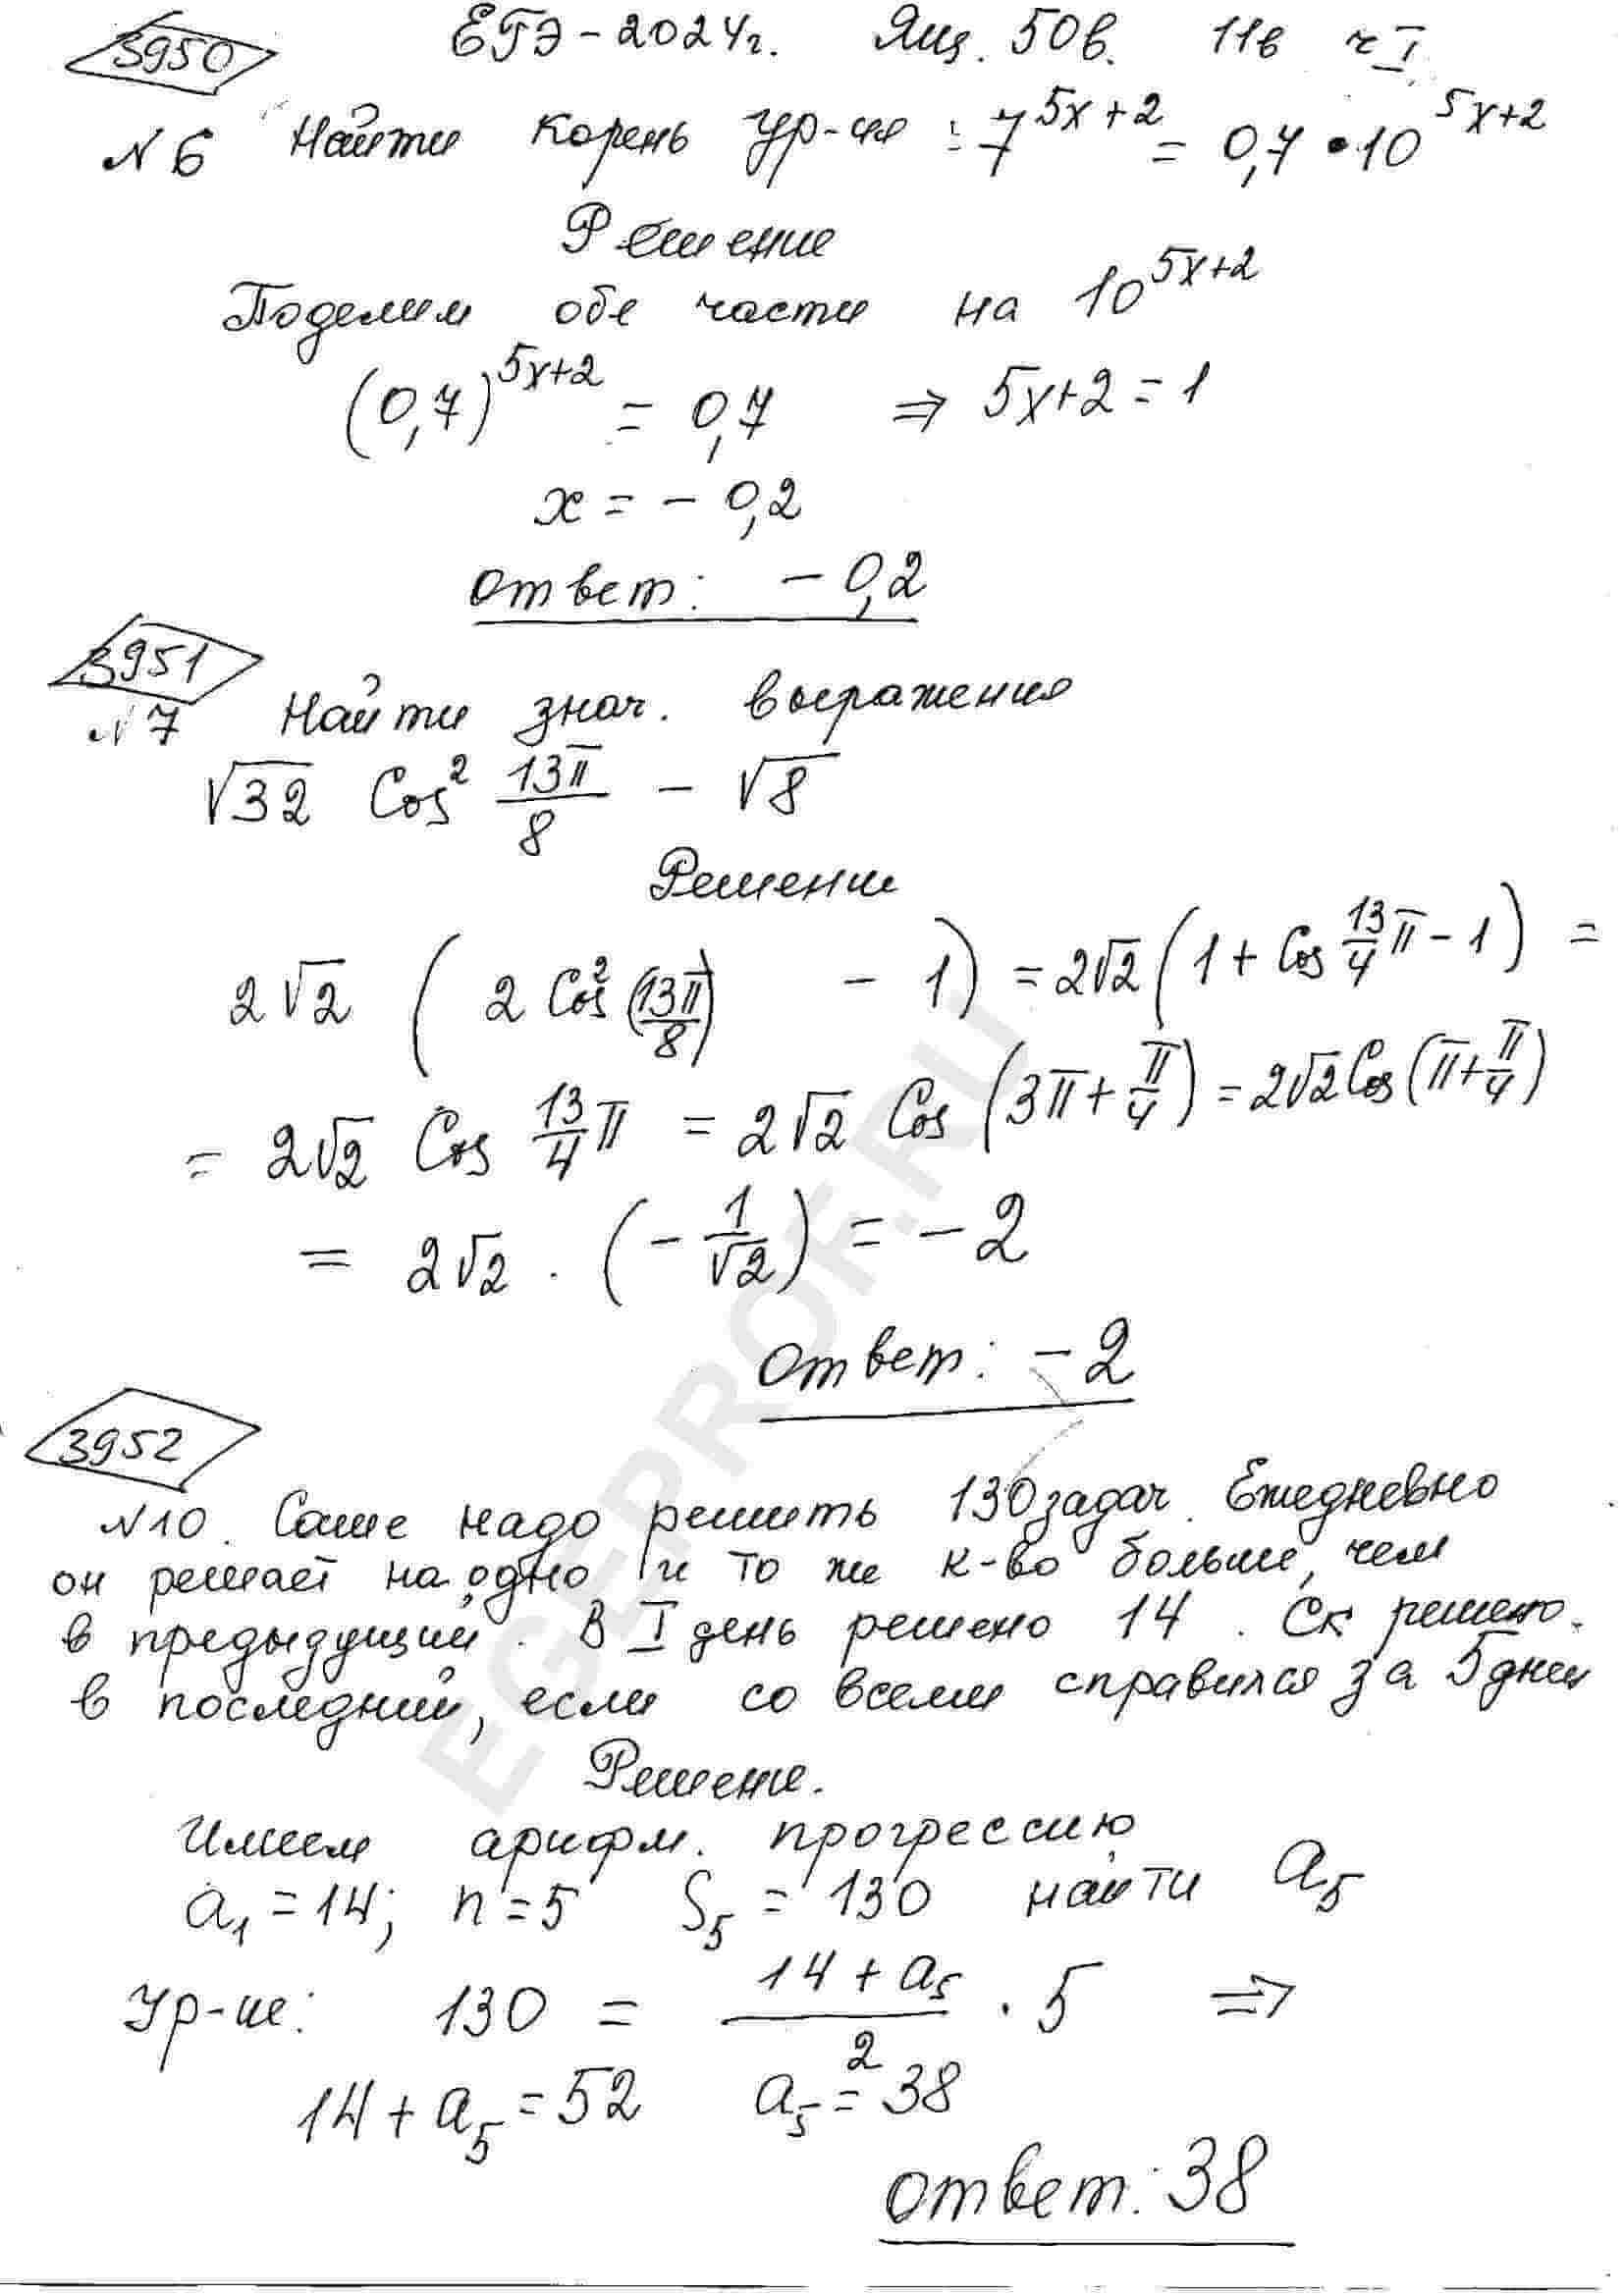 3950 ЕГЭ-2024г. Ящ. 50в. 11в ч I
№6 Найти корень ур-ия : 7^(5x+2) = 0,7 • 10^(5x+2)
Решение
Поделим обе части на 10^(5x+2)
(0,7)^(5x+2) = 0,7 ⇒ 5x+2 = 1
x = - 0,2
ответ: - 0,2
3951
№7 Найти знач. выражения
√32 Cos² 13π/8 - √8
Решение
2√2 ( 2 Cos² (13π/8) - 1) = 2√2 (1 + Cos 13/4 π - 1) =
= 2√2 Cos 13/4 π = 2√2 Cos (3π + π/4) = 2√2 Cos (π + π/4)
= 2√2 · (- 1/√2) = - 2
ответ: - 2
3952
№10. Саше надо решить 130 задач. Ежедневно
он решает на одно и то же к-во больше, чем
в предыдущий. В I день решено 14. Ск решено
в последний, если со всеми справился за 5 дней
Решение.
Имеем арифм. прогрессию
a₁ = 14; n = 5 S₅ = 130 найти a₅
Ур-ие: 130 = (14 + a₅)/2 · 5 ⇒
14 + a₅ = 52 a₅ = 38
ответ: 38
EGEPROF.RU